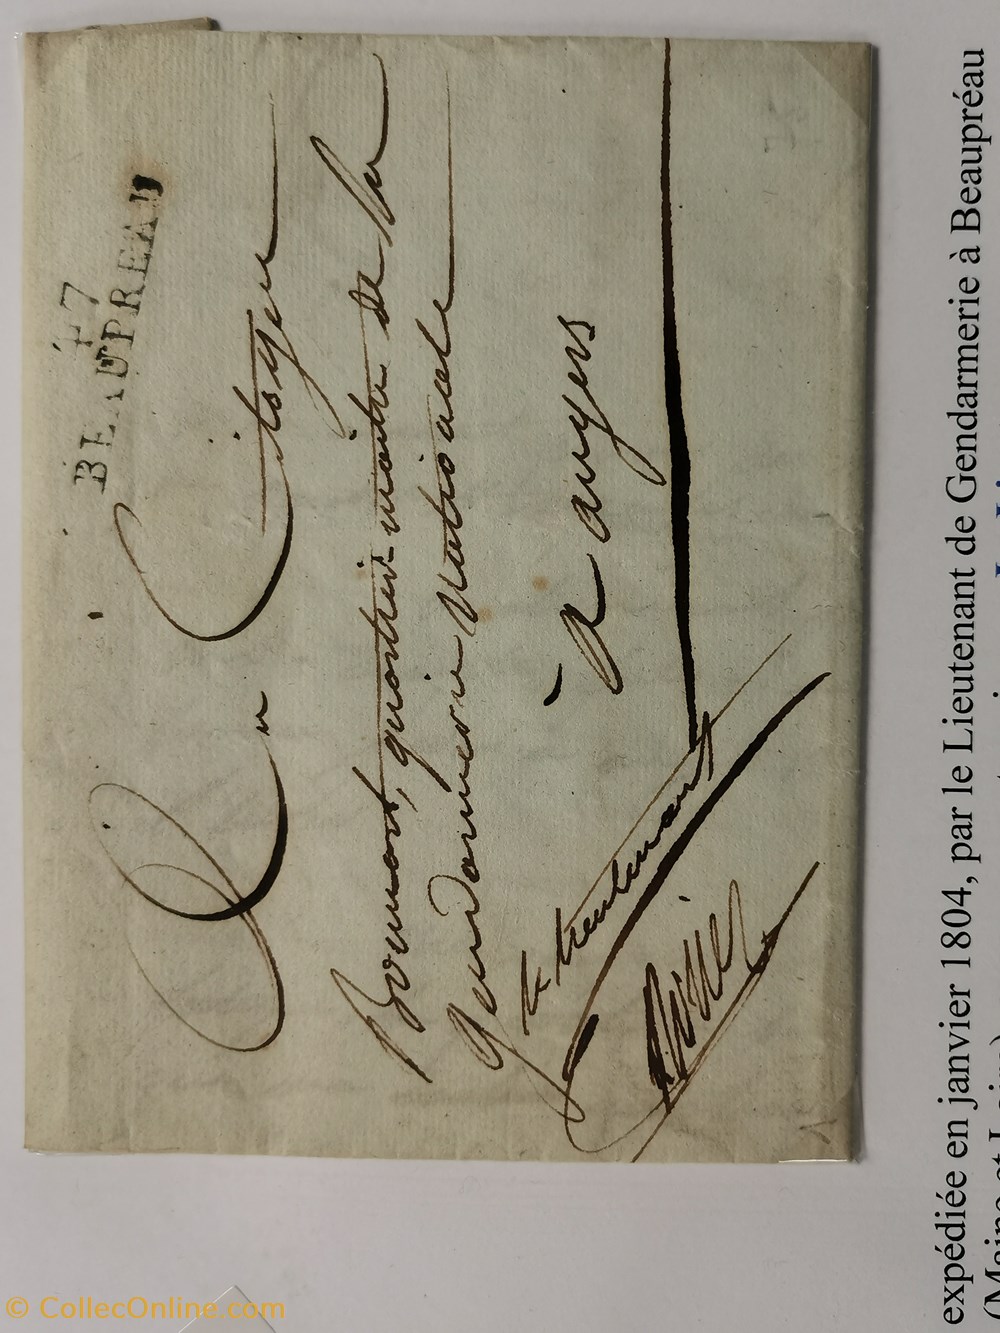 47
BEAUPREAU
Au Citoyen
quartier-maitre de la
Gendarmerie Nationale
à angers
Le Lieutenant
expédiée en janvier 1804, par le Lieutenant de Gendarmerie à Beaupréau
© CollecOnline.com